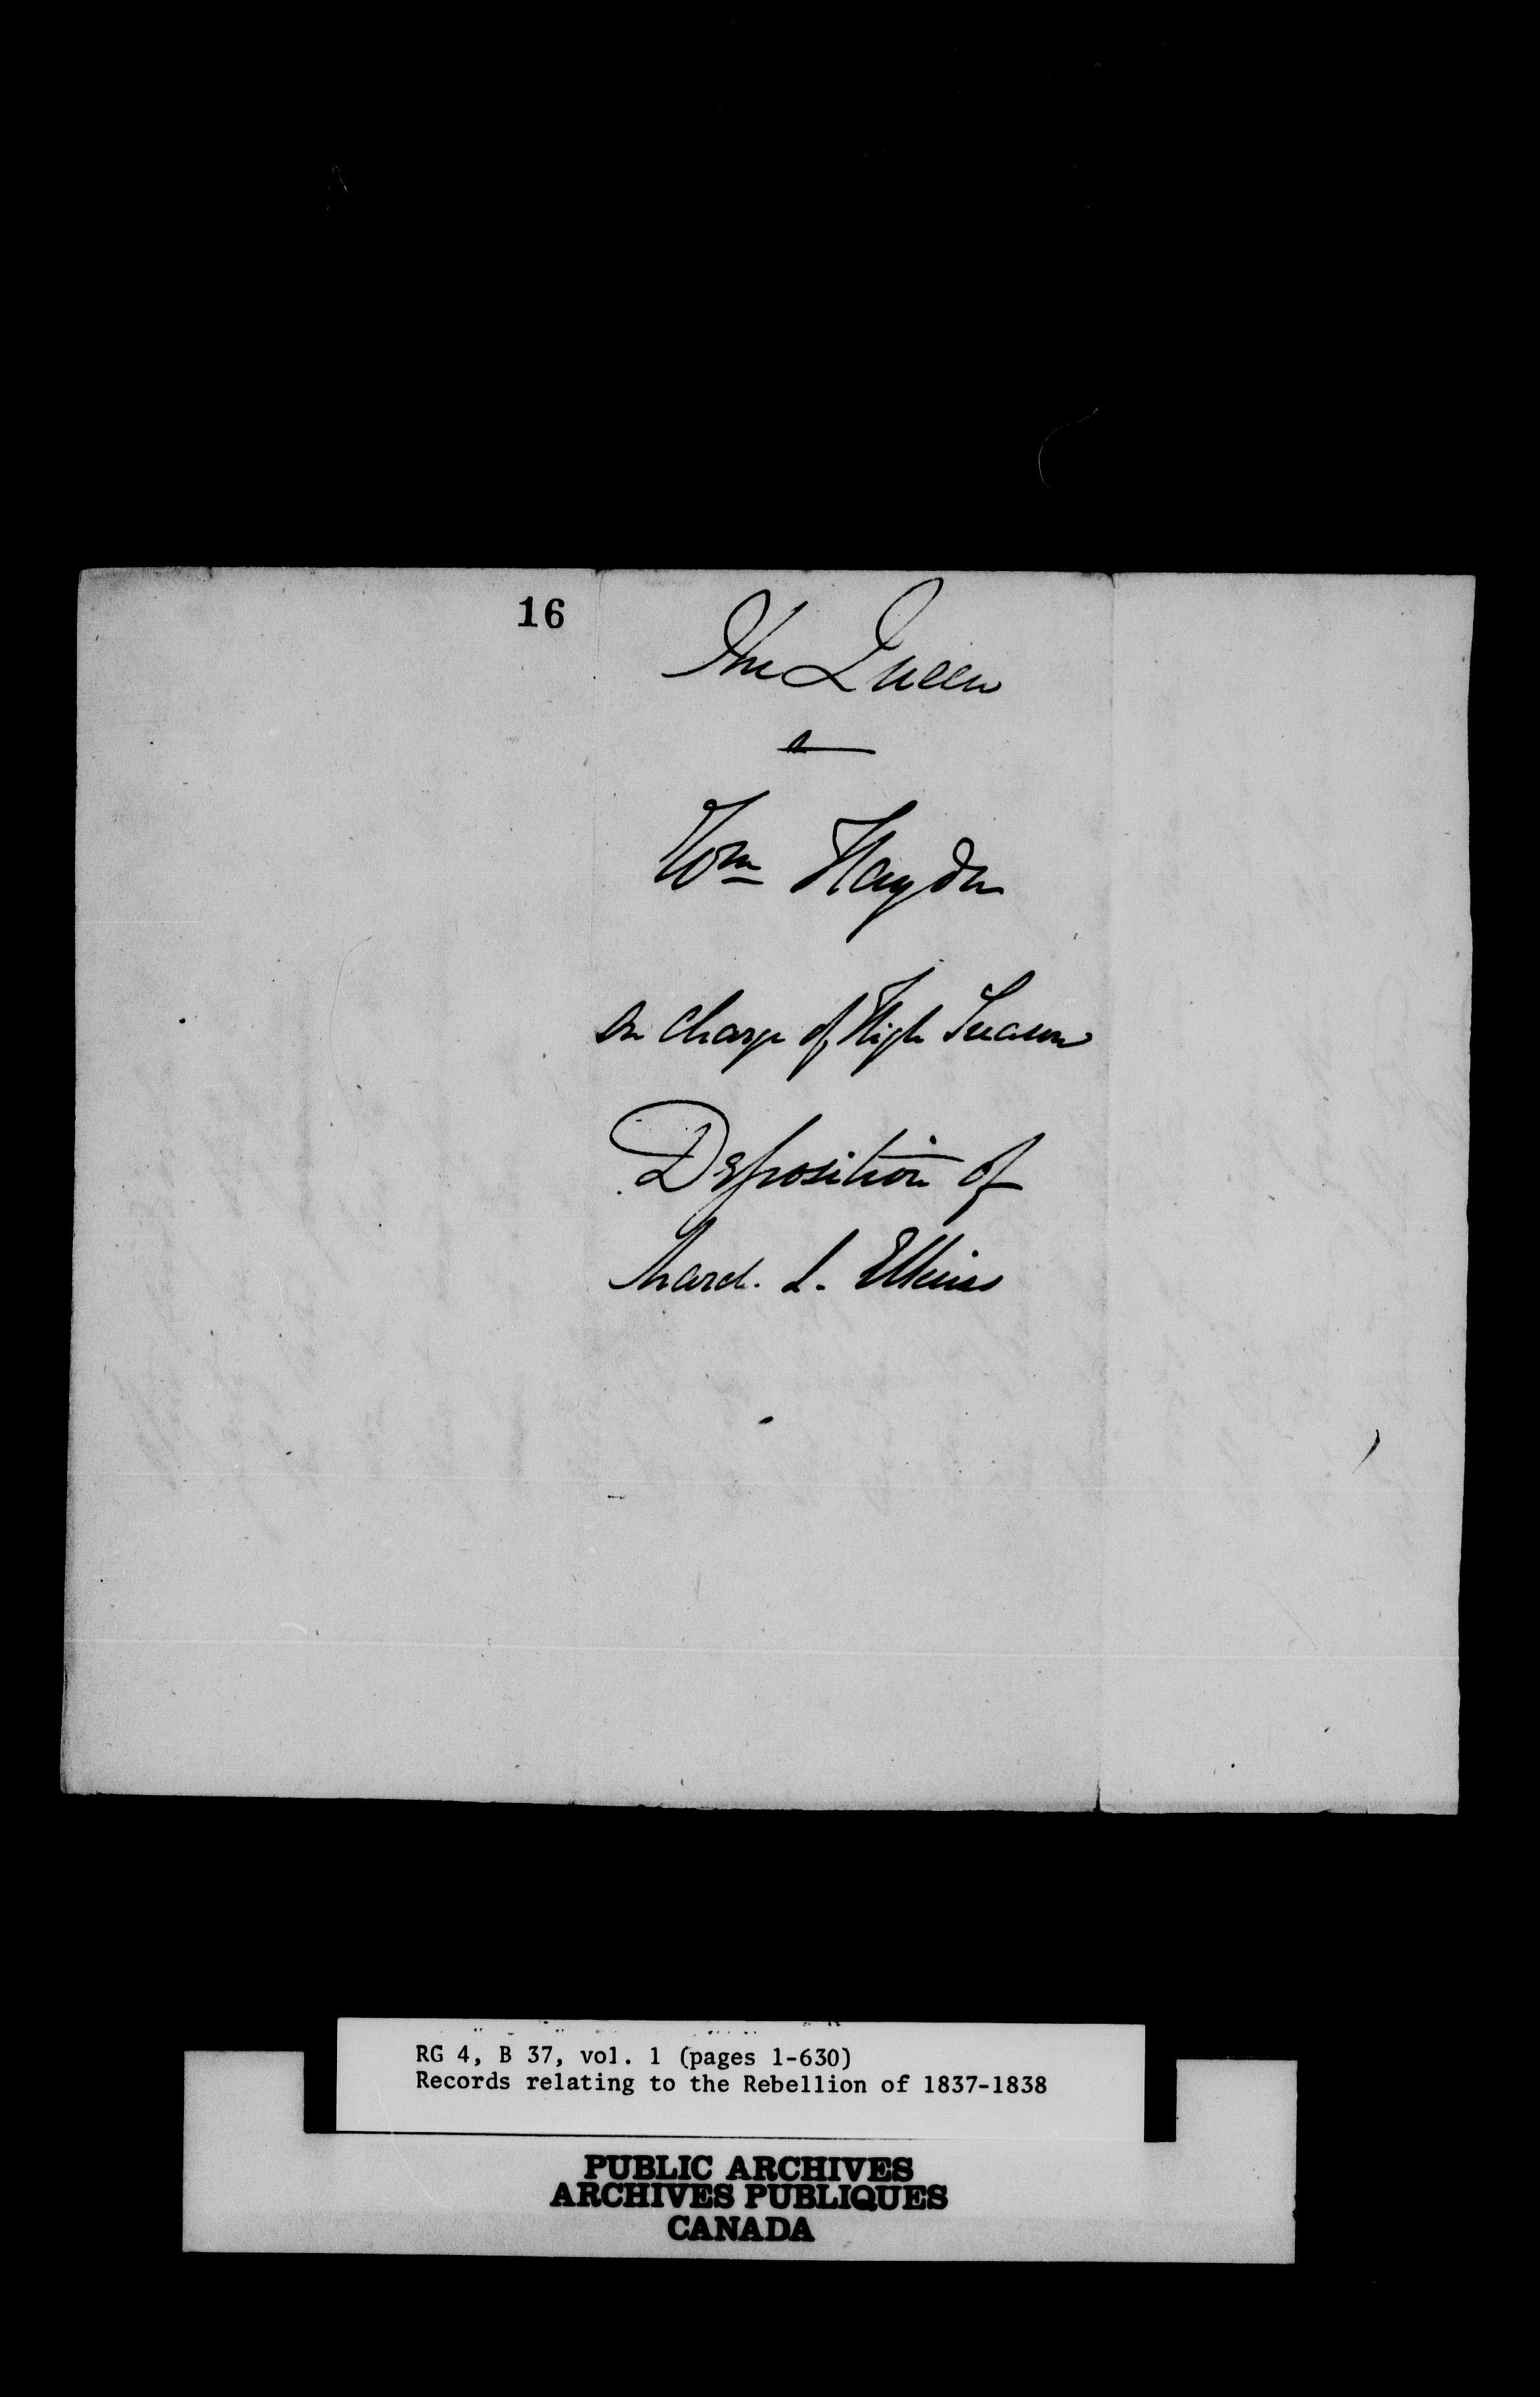 16
The Queen
Wm Haydn
on charge of High Treason
Deposition of
L. Elkins
RG 4, B 37, vol. 1 (pages 1-630)
Records relating to the Rebellion of 1837-1838
PUBLIC ARCHIVES
ARCHIVES PUBLIQUES
CANADA